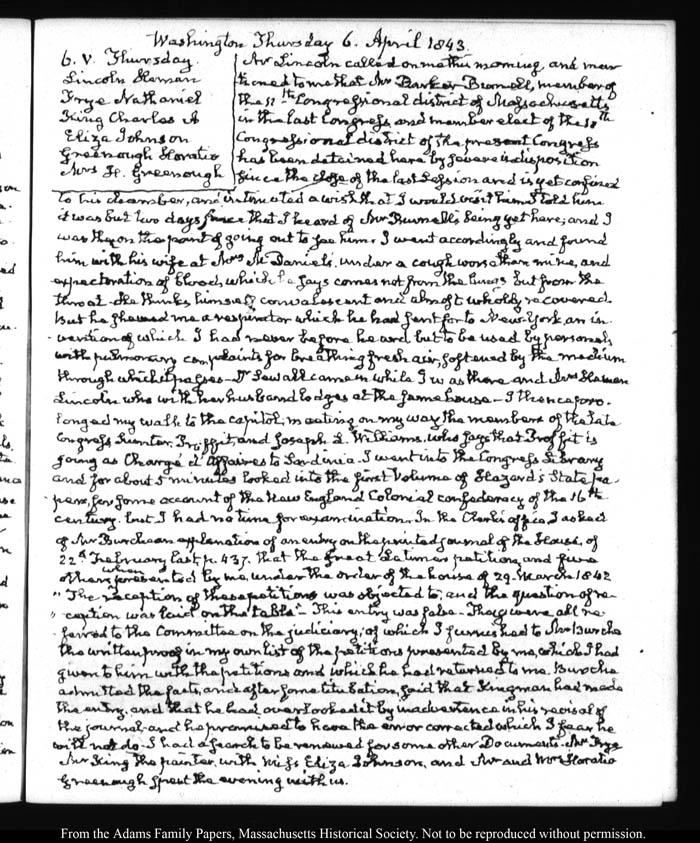 Washington Thursday 6. April 1843.
6. V. Thursday.
Lincoln Heman
Frye Nathaniel
King Charles
Eliza Johnson
Greenough Horatio
Mrs H. Greenough
Mr Lincoln called on me this morning, and men
tioned to me that Mr Barker Burnell, member of
the 11th Congressional district of Massachusetts
in the last Congress, and member elect of the 10th
Congressional district of the present Congress
has been detained here by severe indisposition
since the close of the last Session and is yet confined
to his chamber, and intimated a wish that I would visit him. I told him
it was but two days since that I heard of Mr Burnell's being yet here; and I
was then on the point of going out to see him. I went accordingly and found
him with his wife at Mrs McDaniel's, under a cough worse than mine, and
expectoration of blood, which he says comes not from the lungs but from the
throat. He thinks himself convalescent and almost wholly recovered.
But he shewed me a respirator which he had sent for to New-York an in
vention of which I had never before heard but to be used by persons
with pulmonary complaints for breathing fresh air, softened by the medium
through which it passes. Dr Sewall came in while I was there and Mrs Heman
Lincoln who with her husband lodges at the same house. I thence pro
longed my walk to the capitol, meeting on my way the members of the late
Congress Proffit, and Joseph L. Williams, who says that Proffit is
going as Chargé d'Affaires to Sardinia. I went into the Congress Library
and for about 5 minutes looked into the first Volume of Hazard's State pa
pers, for some account of the New England Colonial confederacy of the 16th
century. but I had no time for examination. In the Clerk's office I asked
of Mr Burch an explanation of an entry on the printed journal of the House, of
22d February last p. 437. that the great Latimer petition, and five
others when presented by me, under the order of the house of 29. March 1842
"The reception of these petitions was objected to; and the question of re
"ception was laid on the table" This entry was false. They were all re
ferred to the Committee on the judiciary; of which I furnished to Mr Burch
the written proof in my own list of the petitions presented by me, which I had
given to him with the petitions and which he had returned to me. Burch
admitted the facts, and after some titubation, said that Kingman had made
the entry, and that he had overlooked it by inadvertence in his revisal of
the journal and he promised to have the error corrected which I fear he
will not do. I had a search to be renewed for some other Documents. Mr Frye
Mr King the painter, with Miss Eliza Johnson, and Mr and Mrs Horatio
Greenough spent the evening with us.
From the Adams Family Papers, Massachusetts Historical Society. Not to be reproduced without permission.